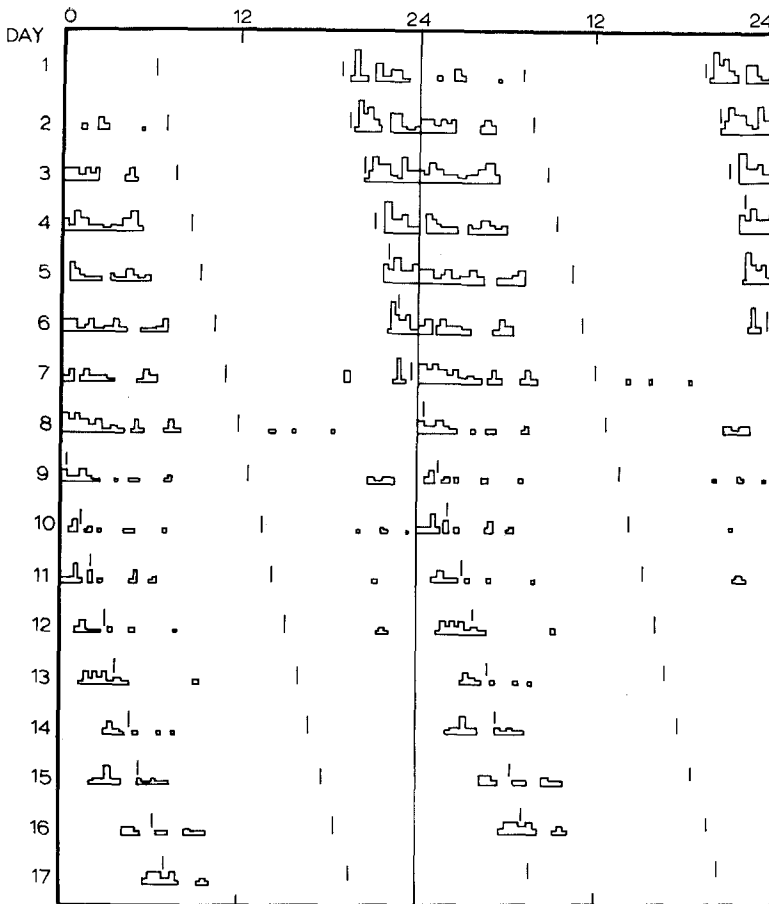 0 12 24 12 24
DAY
1
2
3
4
5
6
7
8
9
10
11
12
13
14
15
16
17